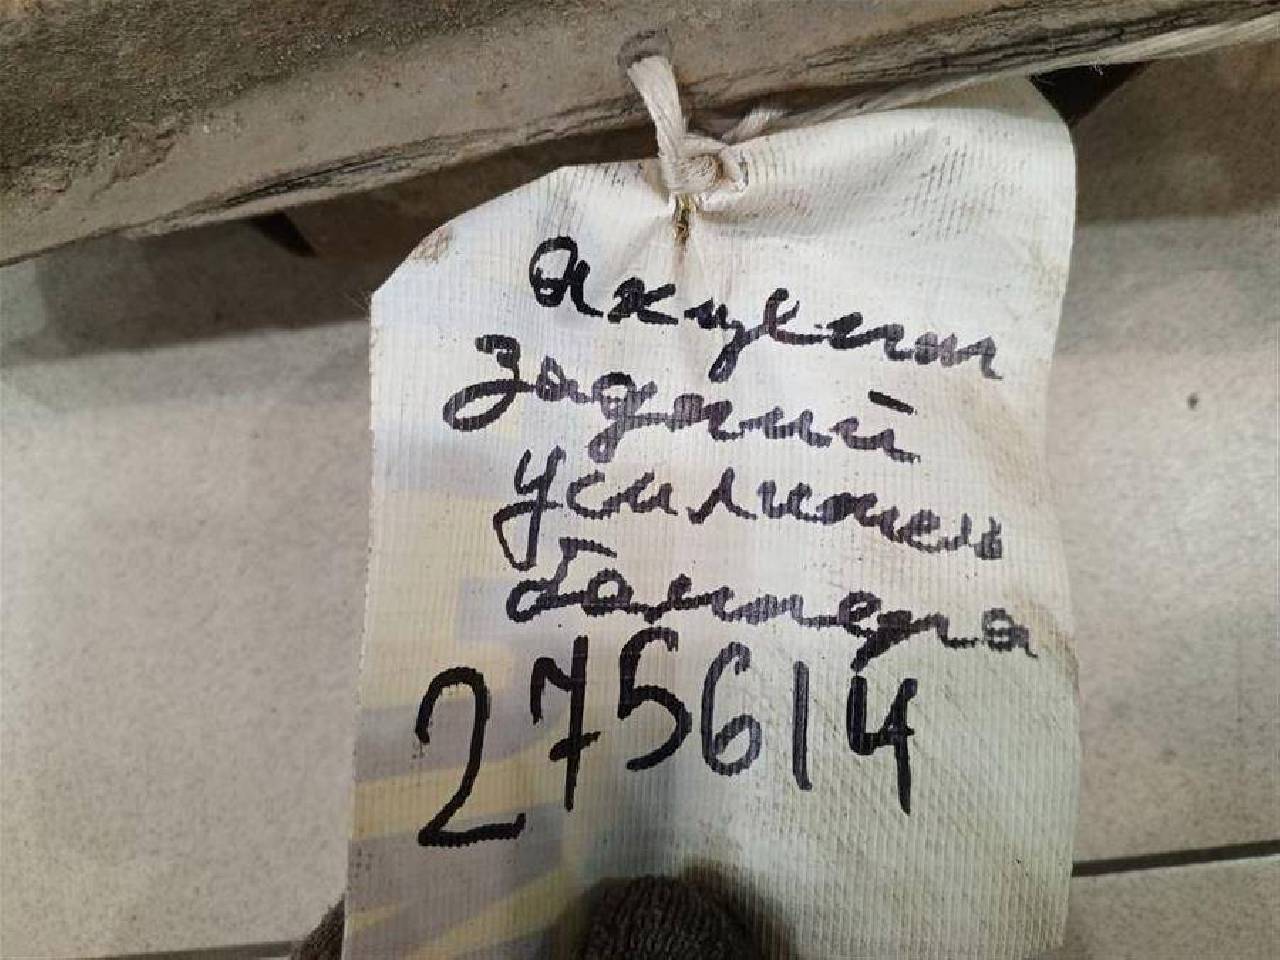 Акцент
задний
усилитель
бампера
275614